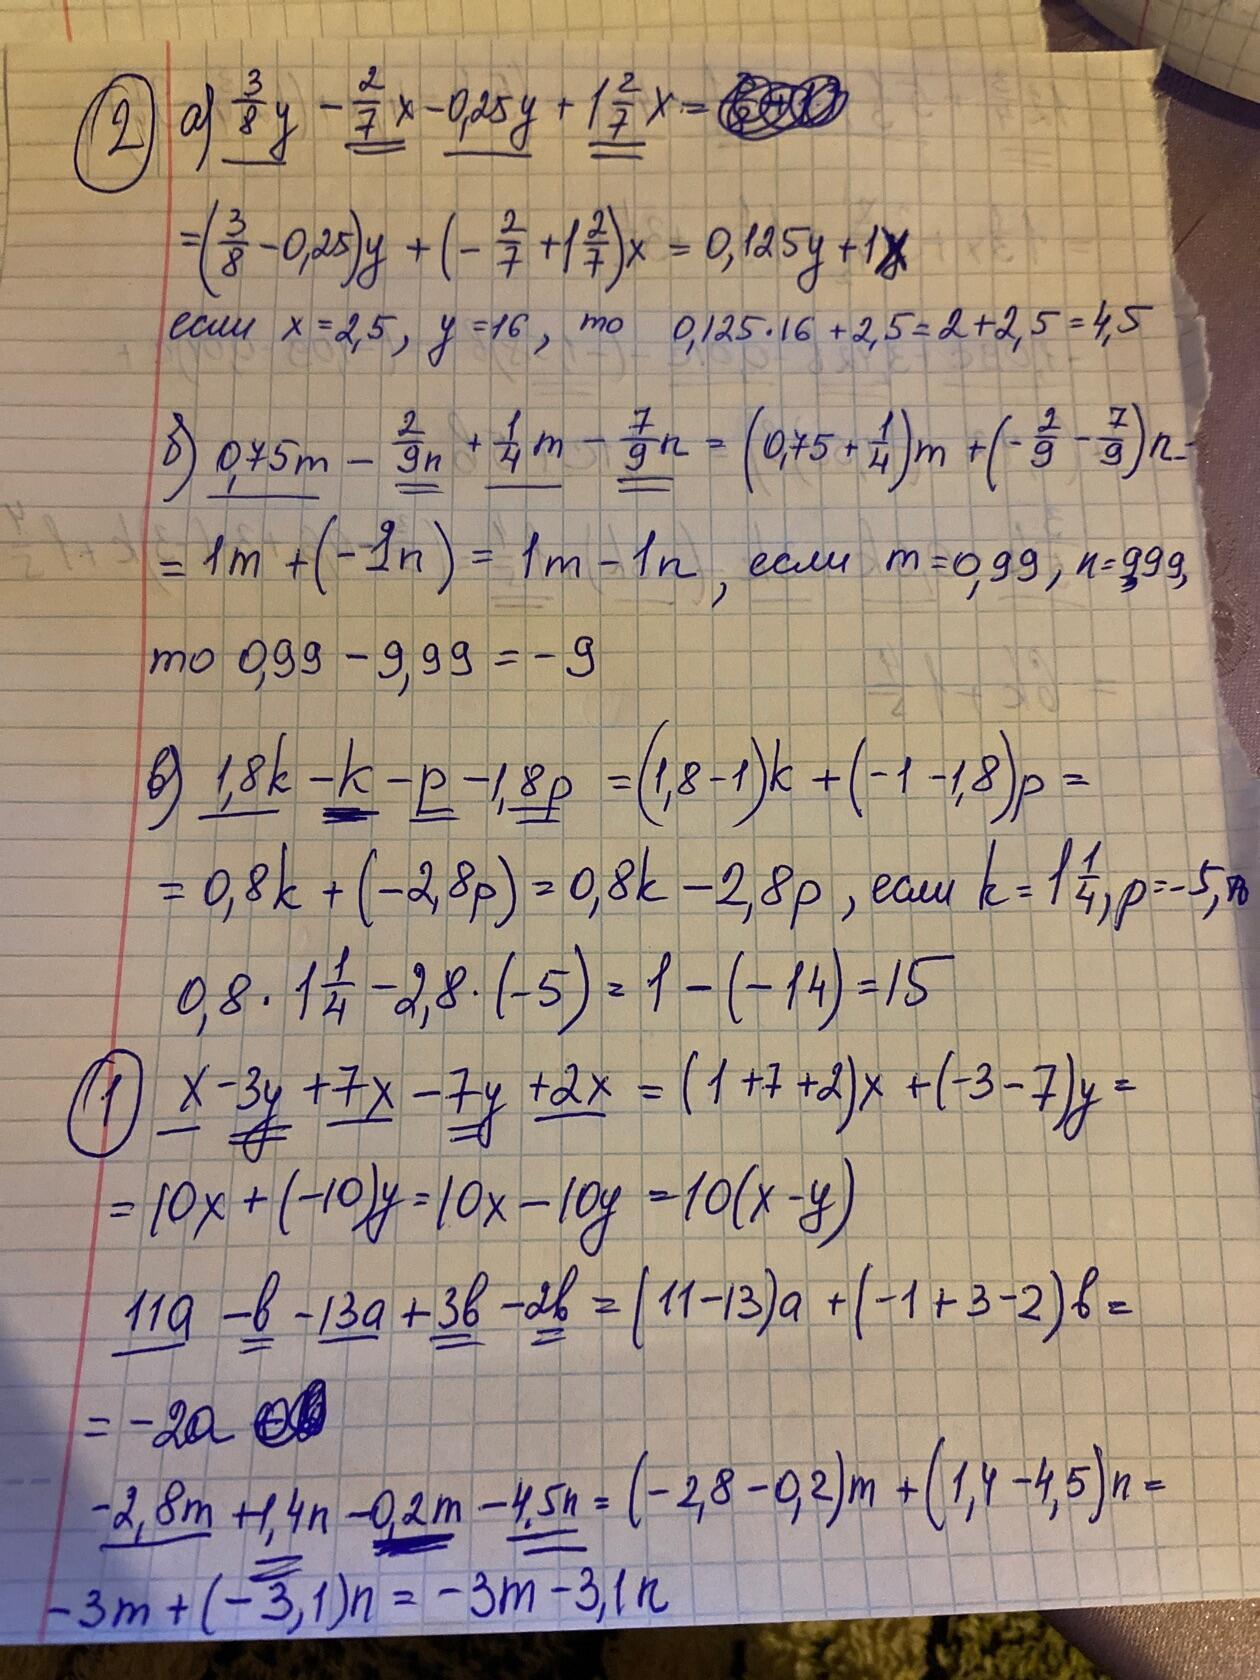 2 а) 3/8 y - 2/7 x - 0,25y + 1 2/7 x =
= (3/8 - 0,25)y + (- 2/7 + 1 2/7)x = 0,125y + 1x
если x = 2,5, y = 16, то 0,125·16 + 2,5 = 2 + 2,5 = 4,5
б) 0,75m - 2/9n + 1/4 m - 7/9 n = (0,75 + 1/4)m + (- 2/9 - 7/9)n =
= 1m + (-1n) = 1m - 1n, если m = 0,99, n = 9,99,
то 0,99 - 9,99 = -9
в) 1,8k - k - p - 1,8p = (1,8 - 1)k + (-1 - 1,8)p =
= 0,8k + (-2,8p) = 0,8k - 2,8p, если k = 1 1/4, p = -5,
0,8 · 1 1/4 - 2,8 · (-5) = 1 - (-14) = 15
1 x - 3y + 7x - 7y + 2x = (1 + 7 + 2)x + (-3 - 7)y =
= 10x + (-10)y = 10x - 10y = 10(x - y)
11a - b - 13a + 3b - 2b = (11 - 13)a + (-1 + 3 - 2)b =
= -2a
-2,8m + 1,4n - 0,2m - 4,5n = (-2,8 - 0,2)m + (1,4 - 4,5)n =
-3m + (-3,1)n = -3m - 3,1n